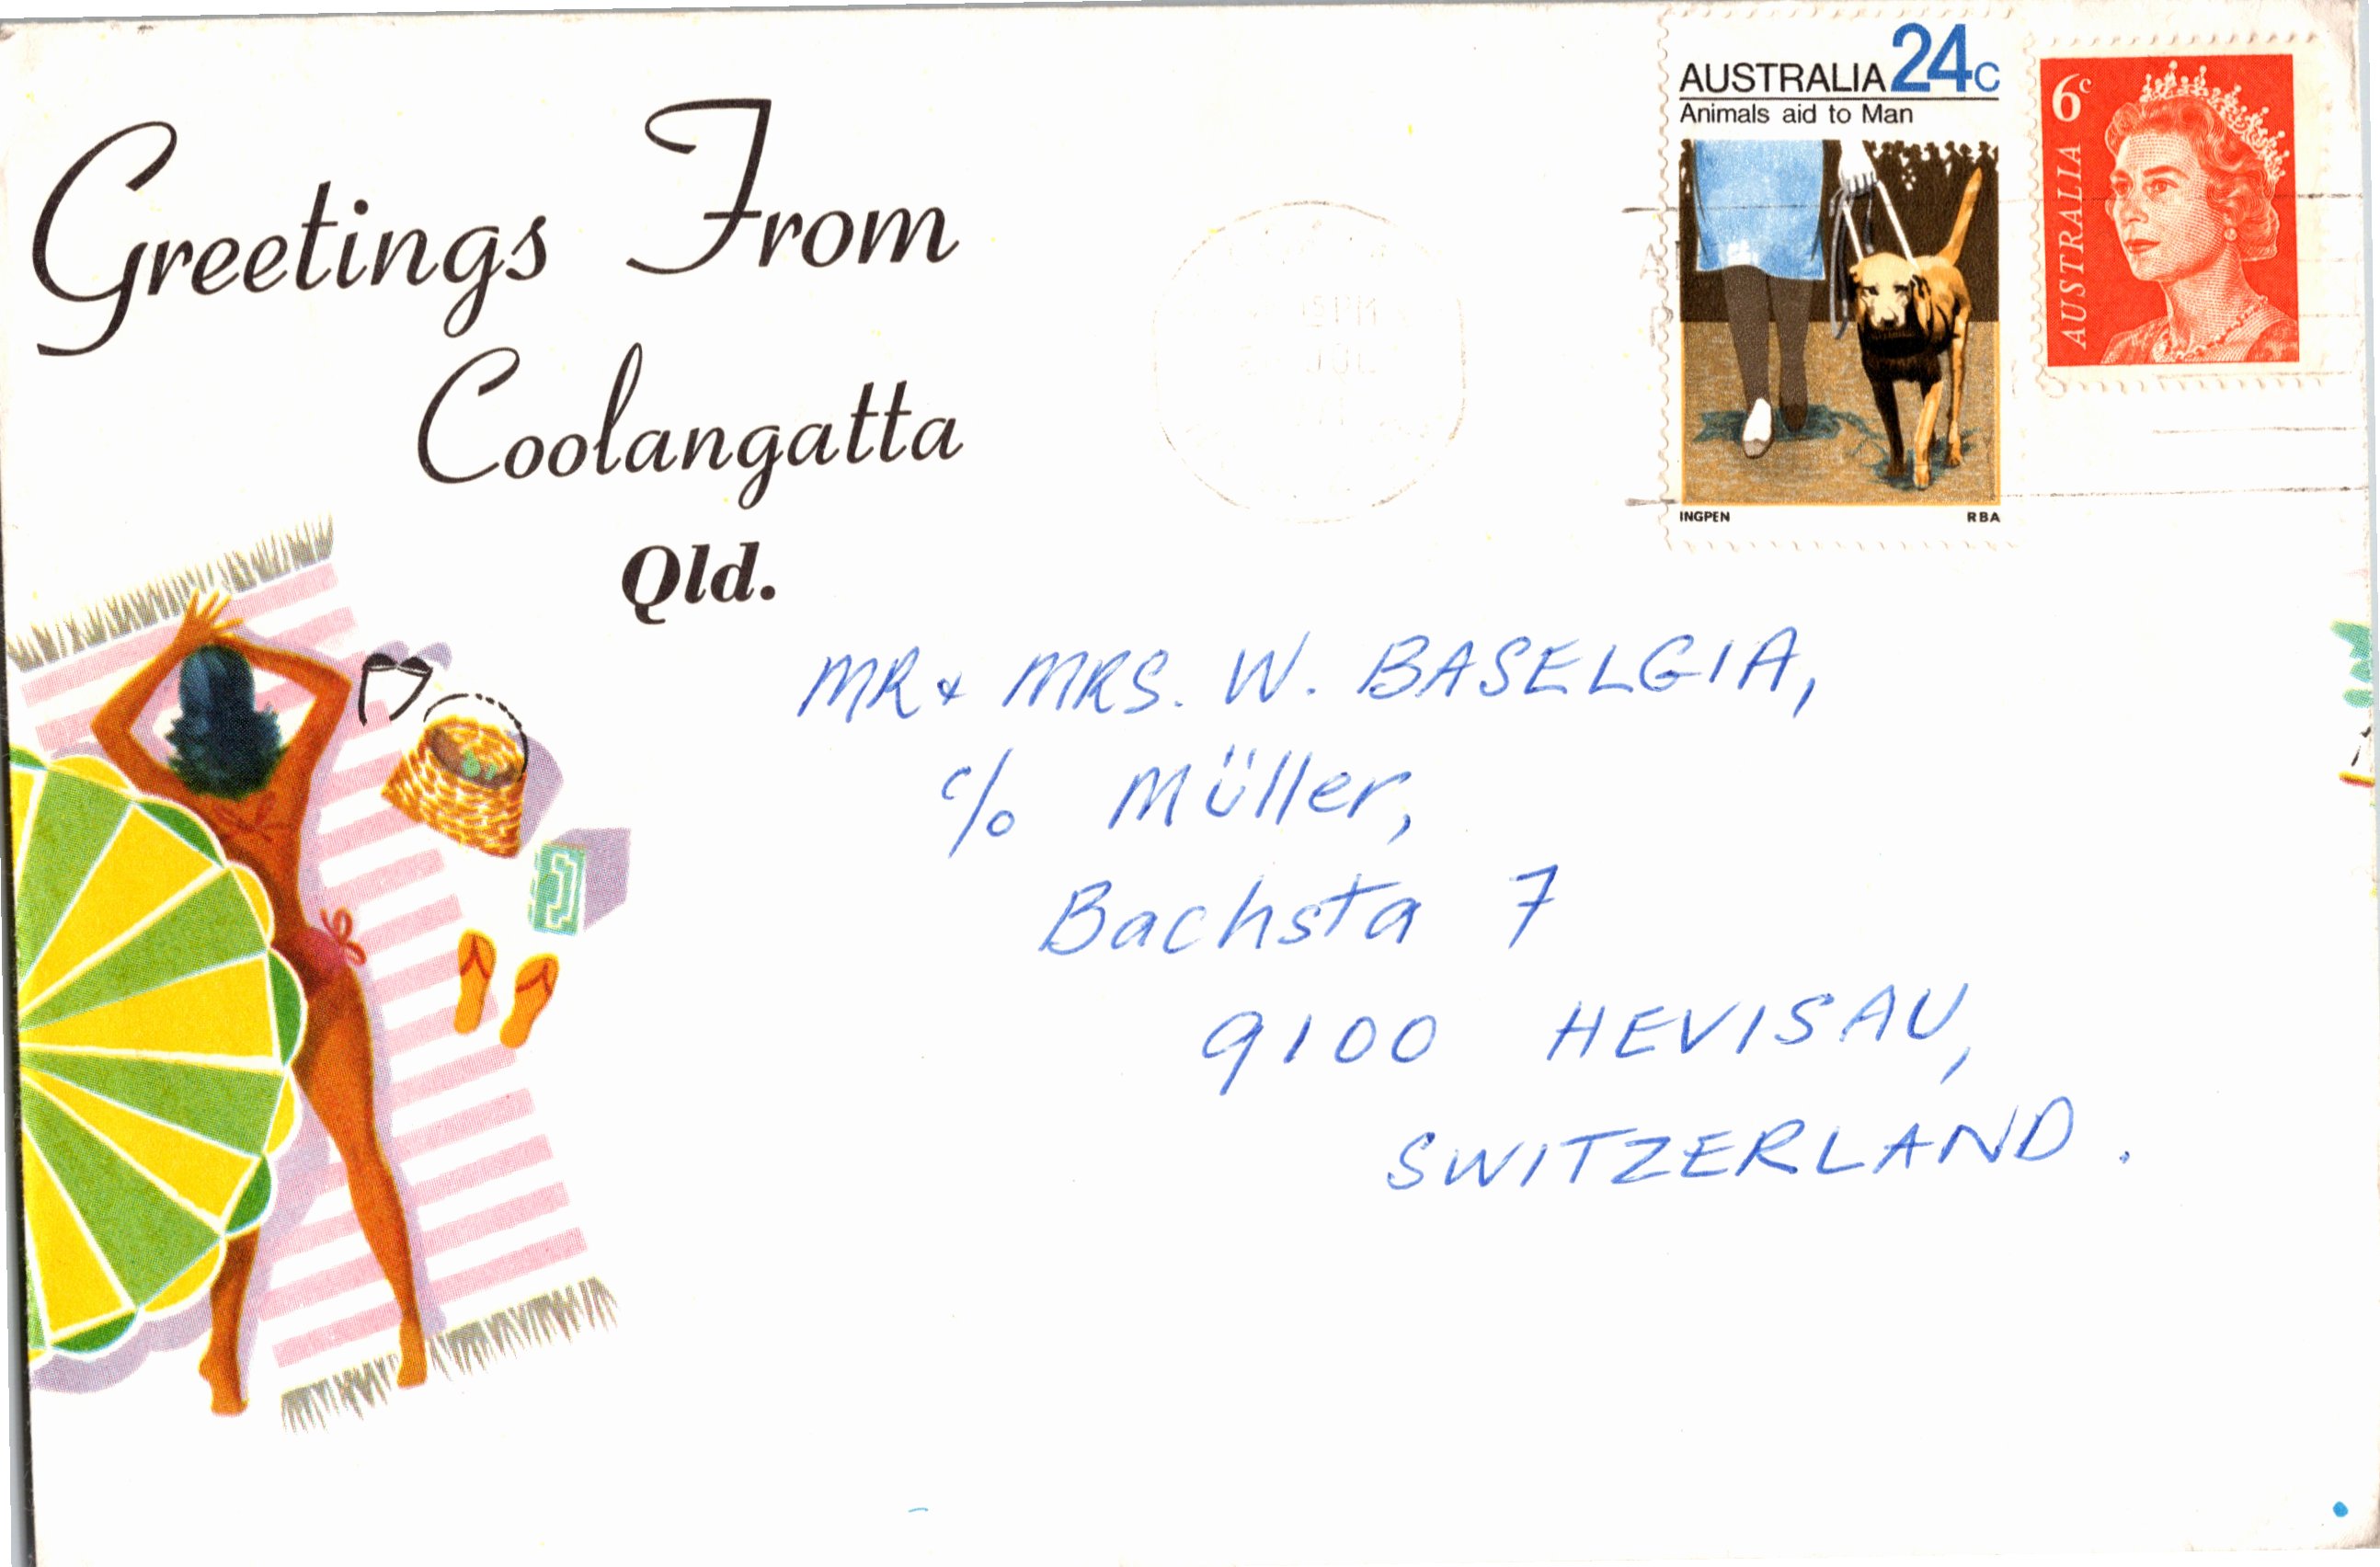 Greetings From
Coolangatta
Qld.
AUSTRALIA 24c
Animals aid to Man
INGPEN RBA
6c
AUSTRALIA
MR & MRS. W. BASELGIA,
c/o Müller,
Bachsta 7
9100 HEVISAU,
SWITZERLAND.